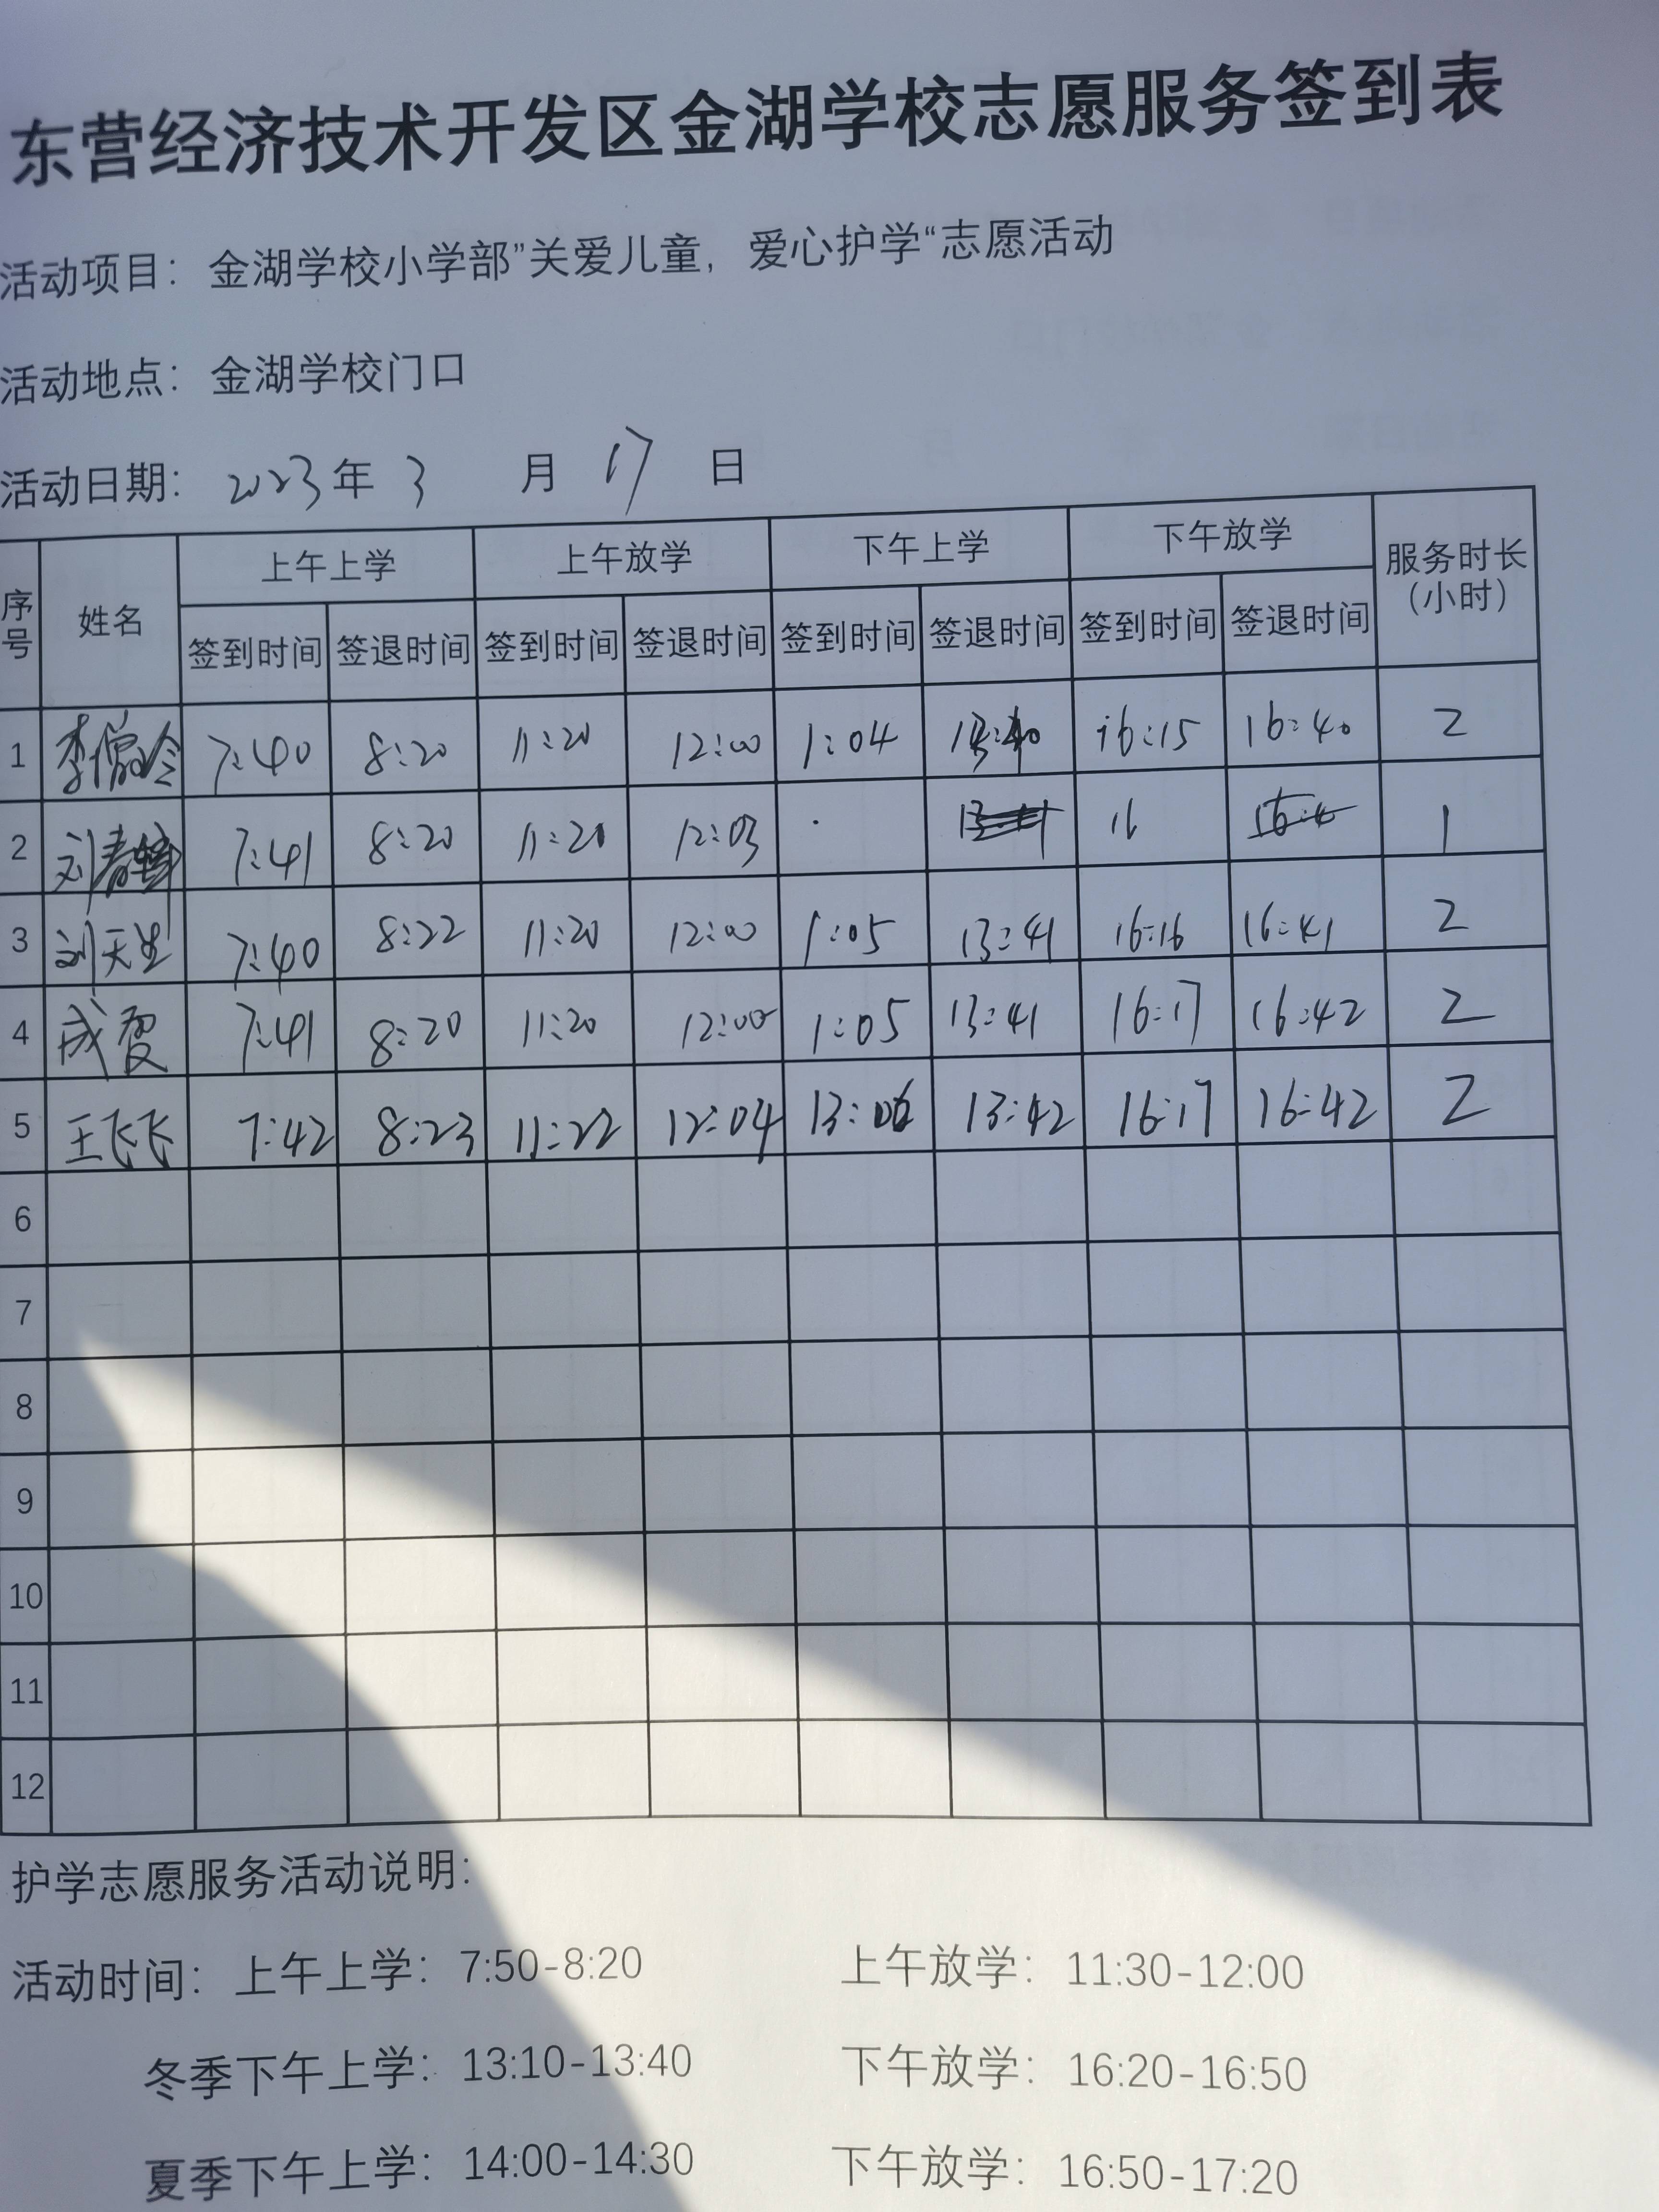 东营经济技术开发区金湖学校志愿服务签到表
活动项目：金湖学校小学部”关爱儿童，爱心护学“志愿活动
活动地点：金湖学校门口
活动日期：2023年 3 月 17 日
序号 姓名 上午上学 上午放学 下午上学 下午放学 服务时长（小时）
签到时间 签退时间 签到时间 签退时间 签到时间 签退时间 签到时间 签退时间
1 7:40 8:20 11:20 12:00 1:04 13:40 16:15 16:40 2
2 7:41 8:20 11:20 12:03 16 1
3 刘天生 7:40 8:22 11:20 12:00 1:05 13:41 16:16 16:41 2
4 7:41 8:20 11:20 12:00 1:05 13:41 16:17 16:42 2
5 王飞飞 7:42 8:23 11:22 12:04 13:06 13:42 16:17 16:42 2
6
7
8
9
10
11
12
护学志愿服务活动说明：
活动时间：上午上学：7:50-8:20 上午放学：11:30-12:00
冬季下午上学：13:10-13:40 下午放学：16:20-16:50
夏季下午上学：14:00-14:30 下午放学：16:50-17:20